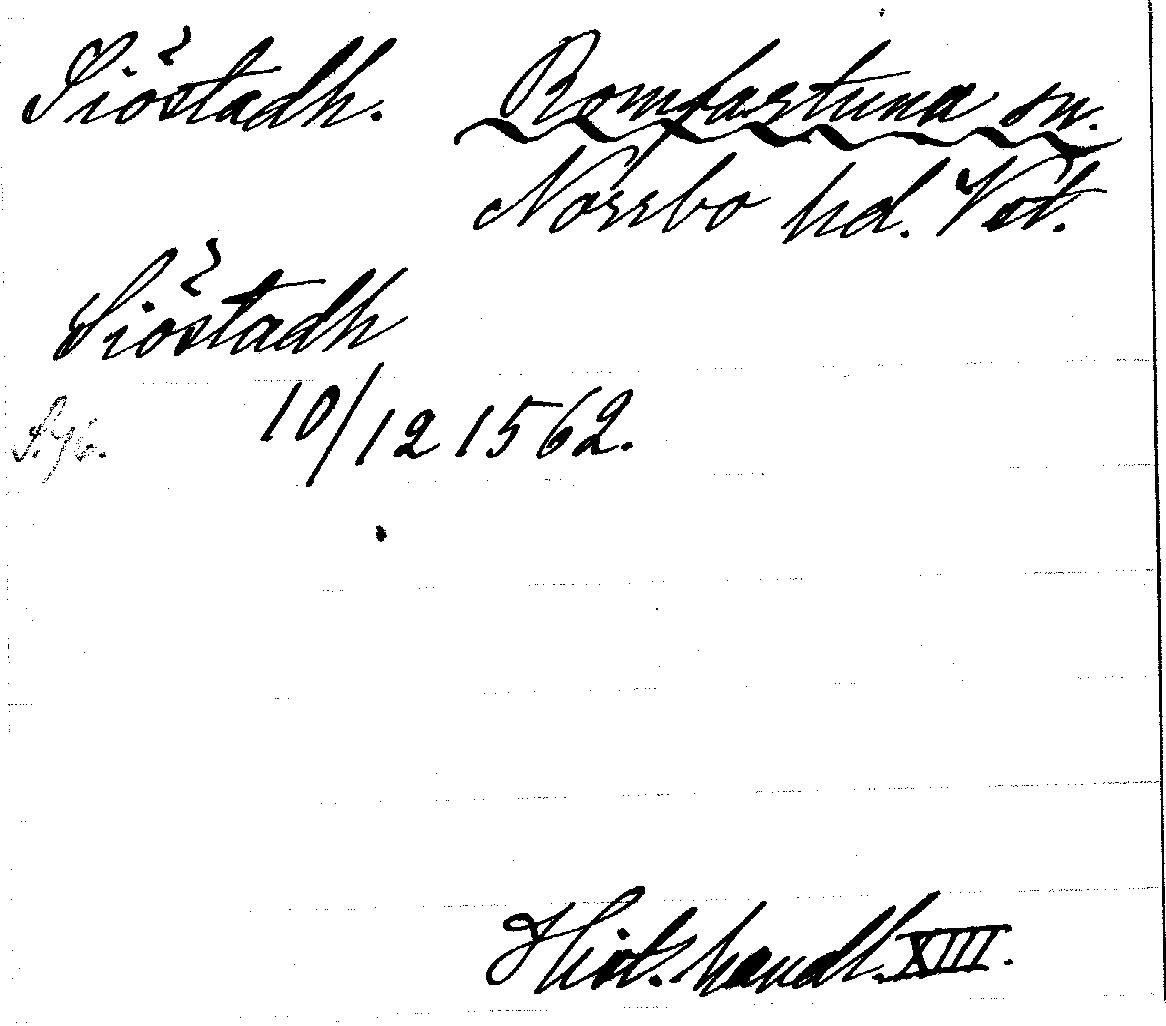 Siöstadh. Romfartuna sn.
Norrbo hd. Vst.
Siöstadh
10/12 1562.
S. 96.
Hist. handl. XIII.